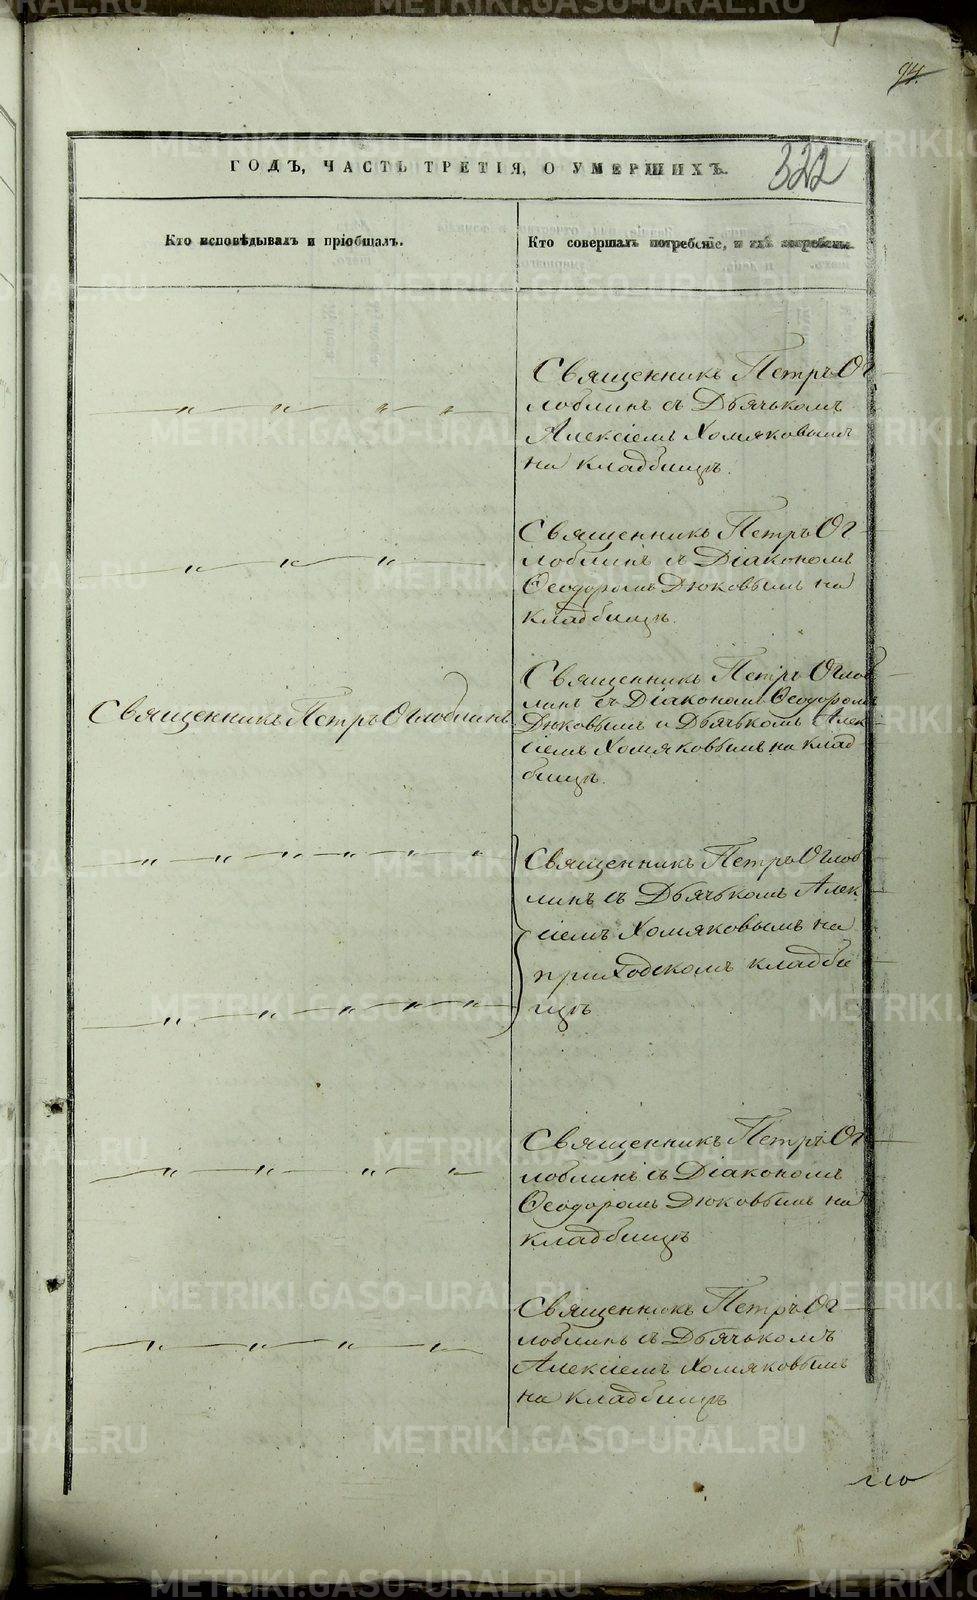 94.
ГОДЪ, ЧАСТЬ ТРЕТІЯ, О УМЕРШИХЪ.
322
Кто исповѣдывалъ и пріобщалъ.
Кто совершалъ погребеніе, и гдѣ погребены.
Священникъ Петръ Ог-
лоблинъ съ Дьячькомъ
Алексіемъ Хомяковымъ
на кладбищѣ.
Священникъ Петръ Ог-
лоблинъ съ Діакономъ
Ѳеодоромъ Дюковымъ на
кладбищѣ.
Священникъ Петръ Оглоблинъ
Священникъ Петръ Оглоб-
линъ съ Діакономъ Ѳеодоромъ
Дюковымъ и Дьячькомъ Алек-
сіемъ Хомяковымъ на клад
бищѣ.
Священникъ Петръ Оглоб
линъ съ Дьячькомъ Алек-
сіемъ Хомяковымъ на
приходскомъ кладби
щѣ
Священникъ Петръ Ог-
лоблинъ съ Діакономъ
Ѳеодоромъ Дюковымъ на
кладбищѣ
Священникъ Петръ Ог-
лоблинъ съ Дьячькомъ
Алексіемъ Хомяковымъ
на кладбищѣ
METRIKI.GASO-URAL.RU